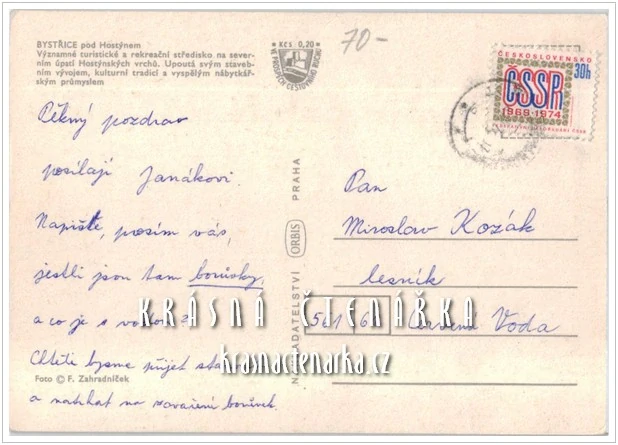 BYSTŘICE pod Hostýnem
Významné turistické a rekreační středisko na sever-
ním úpatí Hostýnských vrchů. Upoutá svým staveb-
ním vývojem, kulturní tradicí a vyspělým nábytkář-
ským průmyslem
Kčs 0,20
VE PROSPĚCH CESTOVNÍHO RUCHU
70-
ČESKOSLOVENSKO
30h
ČSSR
1969-1974
Pěkný pozdrav
posílají Janákovi.
Napište, prosím vás,
jestli jsou tam borůvky,
a co je s vodou?
Chtěli bysme přijet
a natrhat na zavaření borůvek.
Foto © F. Zahradníček
NAKLADATELSTVÍ ORBIS PRAHA
Pan
Miroslav Kozák
lesník
561 61 Červená Voda
KRÁSNÁ ČTENÁŘKA
krasnactenarka.cz